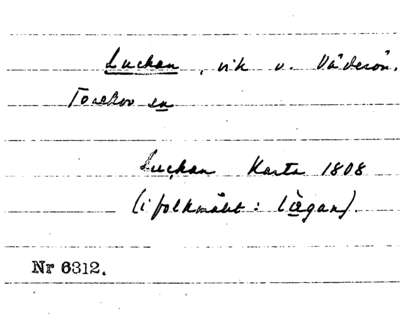 Luckan, vik v. Väderön.
Torekov sn
Luckan Karta 1808
(i folkmålet: lägan)
Nr 6312.